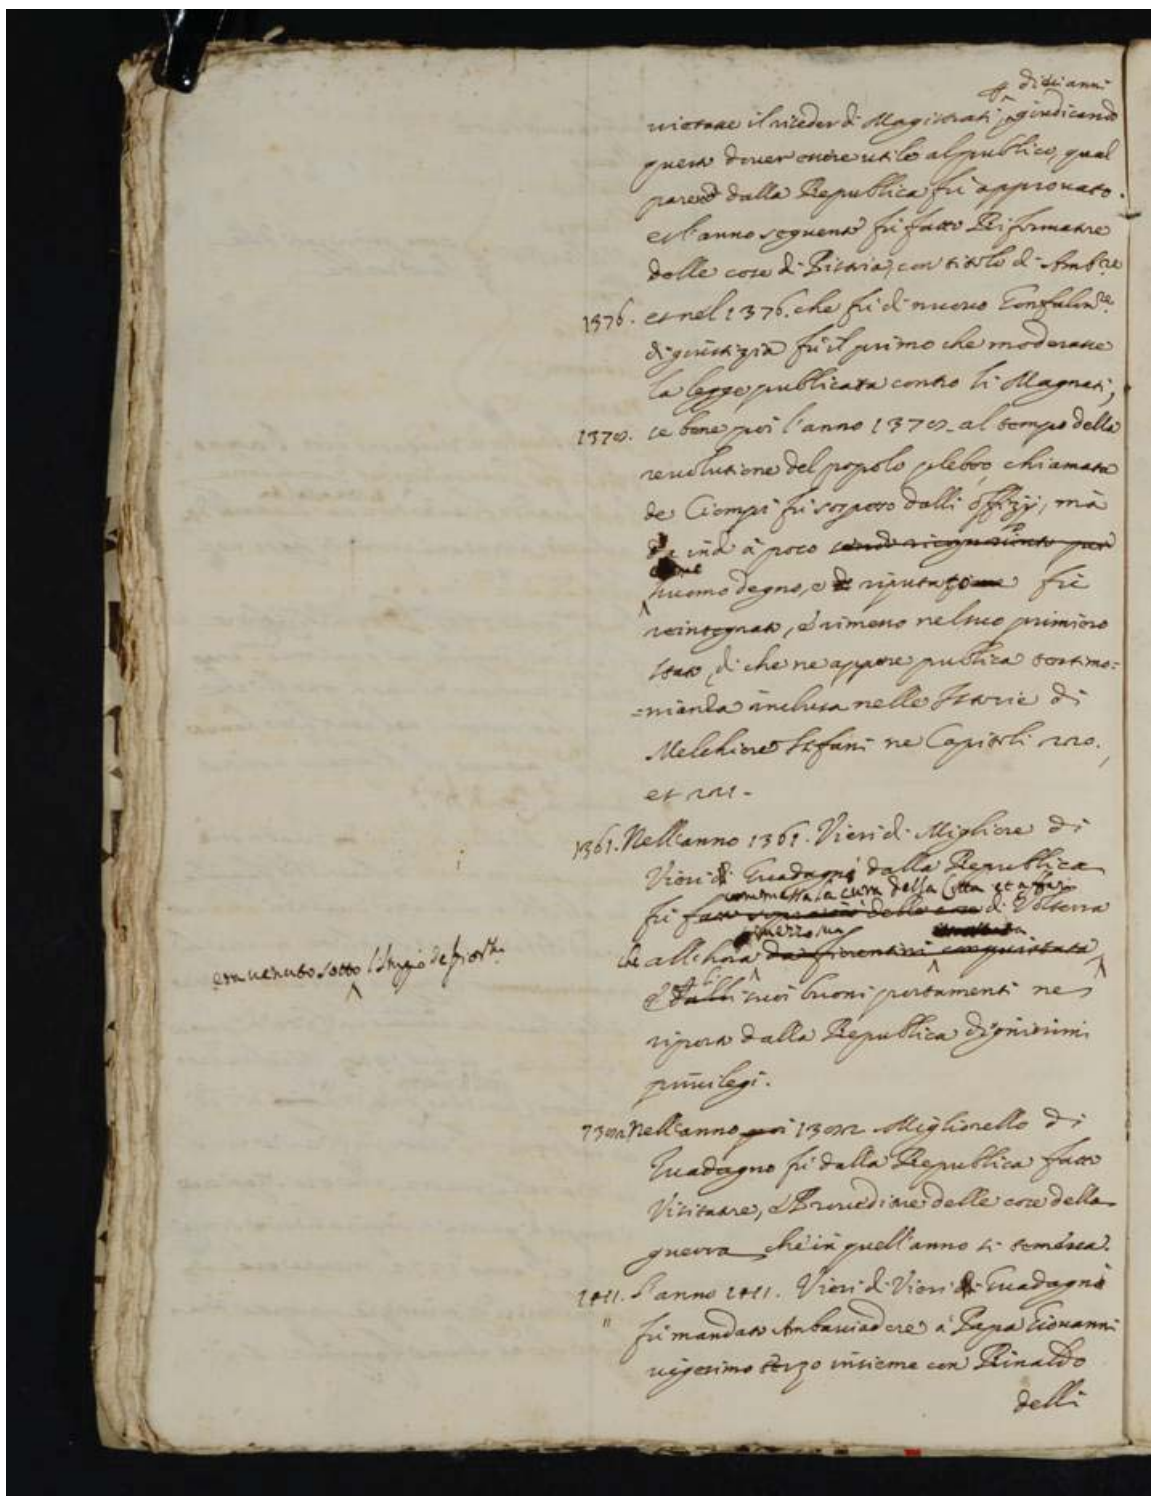 dieci anni
vietare il rieder di Magistrati, giudicando
questo dover essere utile al publico, qual
parere dalla Republica fù approuato.
et l'anno seguente fù fatto Riformatore
delle cose di Pistoia, con titolo di Amb.re
1376. et nel 1376. che fù di nuouo Gonfalon.re
di giustizia fù il primo che moderasse
la legge publicata contro li Magnati,
1378. se bene poi l'anno 1378. al tempo della
reuolutione del popolo plebeo, chiamata
de Ciompi fù sospeso dalli offizij, mà
da indi à poco
come
huomo degno, e riputato fù
reintegrato, e rimesso nel suo primiero
stato, di che ne appare publica testimo=
=nianza inclusa nelle Storie di
Melchiore Stefani ne Capitoli 220.
et 221.
1361. Nell'anno 1361. Vieri di Migliore di
Vieri Guadagni dalla Republica
commessa la cura della Citta et affari
fù di Volterra
che allhora
era uenuto sotto l'
e suoi buoni portamenti ne
riportò dalla Republica dignissimi
priuilegi.
Nell'anno poi Migliorello di
Guadagno fù dalla Republica fatto
Visitatore, e Proueditore delle cose della
guerra che in quell'anno si temeua.
1411. L'anno 1411. Vieri di Vieri Guadagni
fù mandato Ambasciadore à Papa Giouanni
uigesimo terzo insieme con Rinaldo
delli